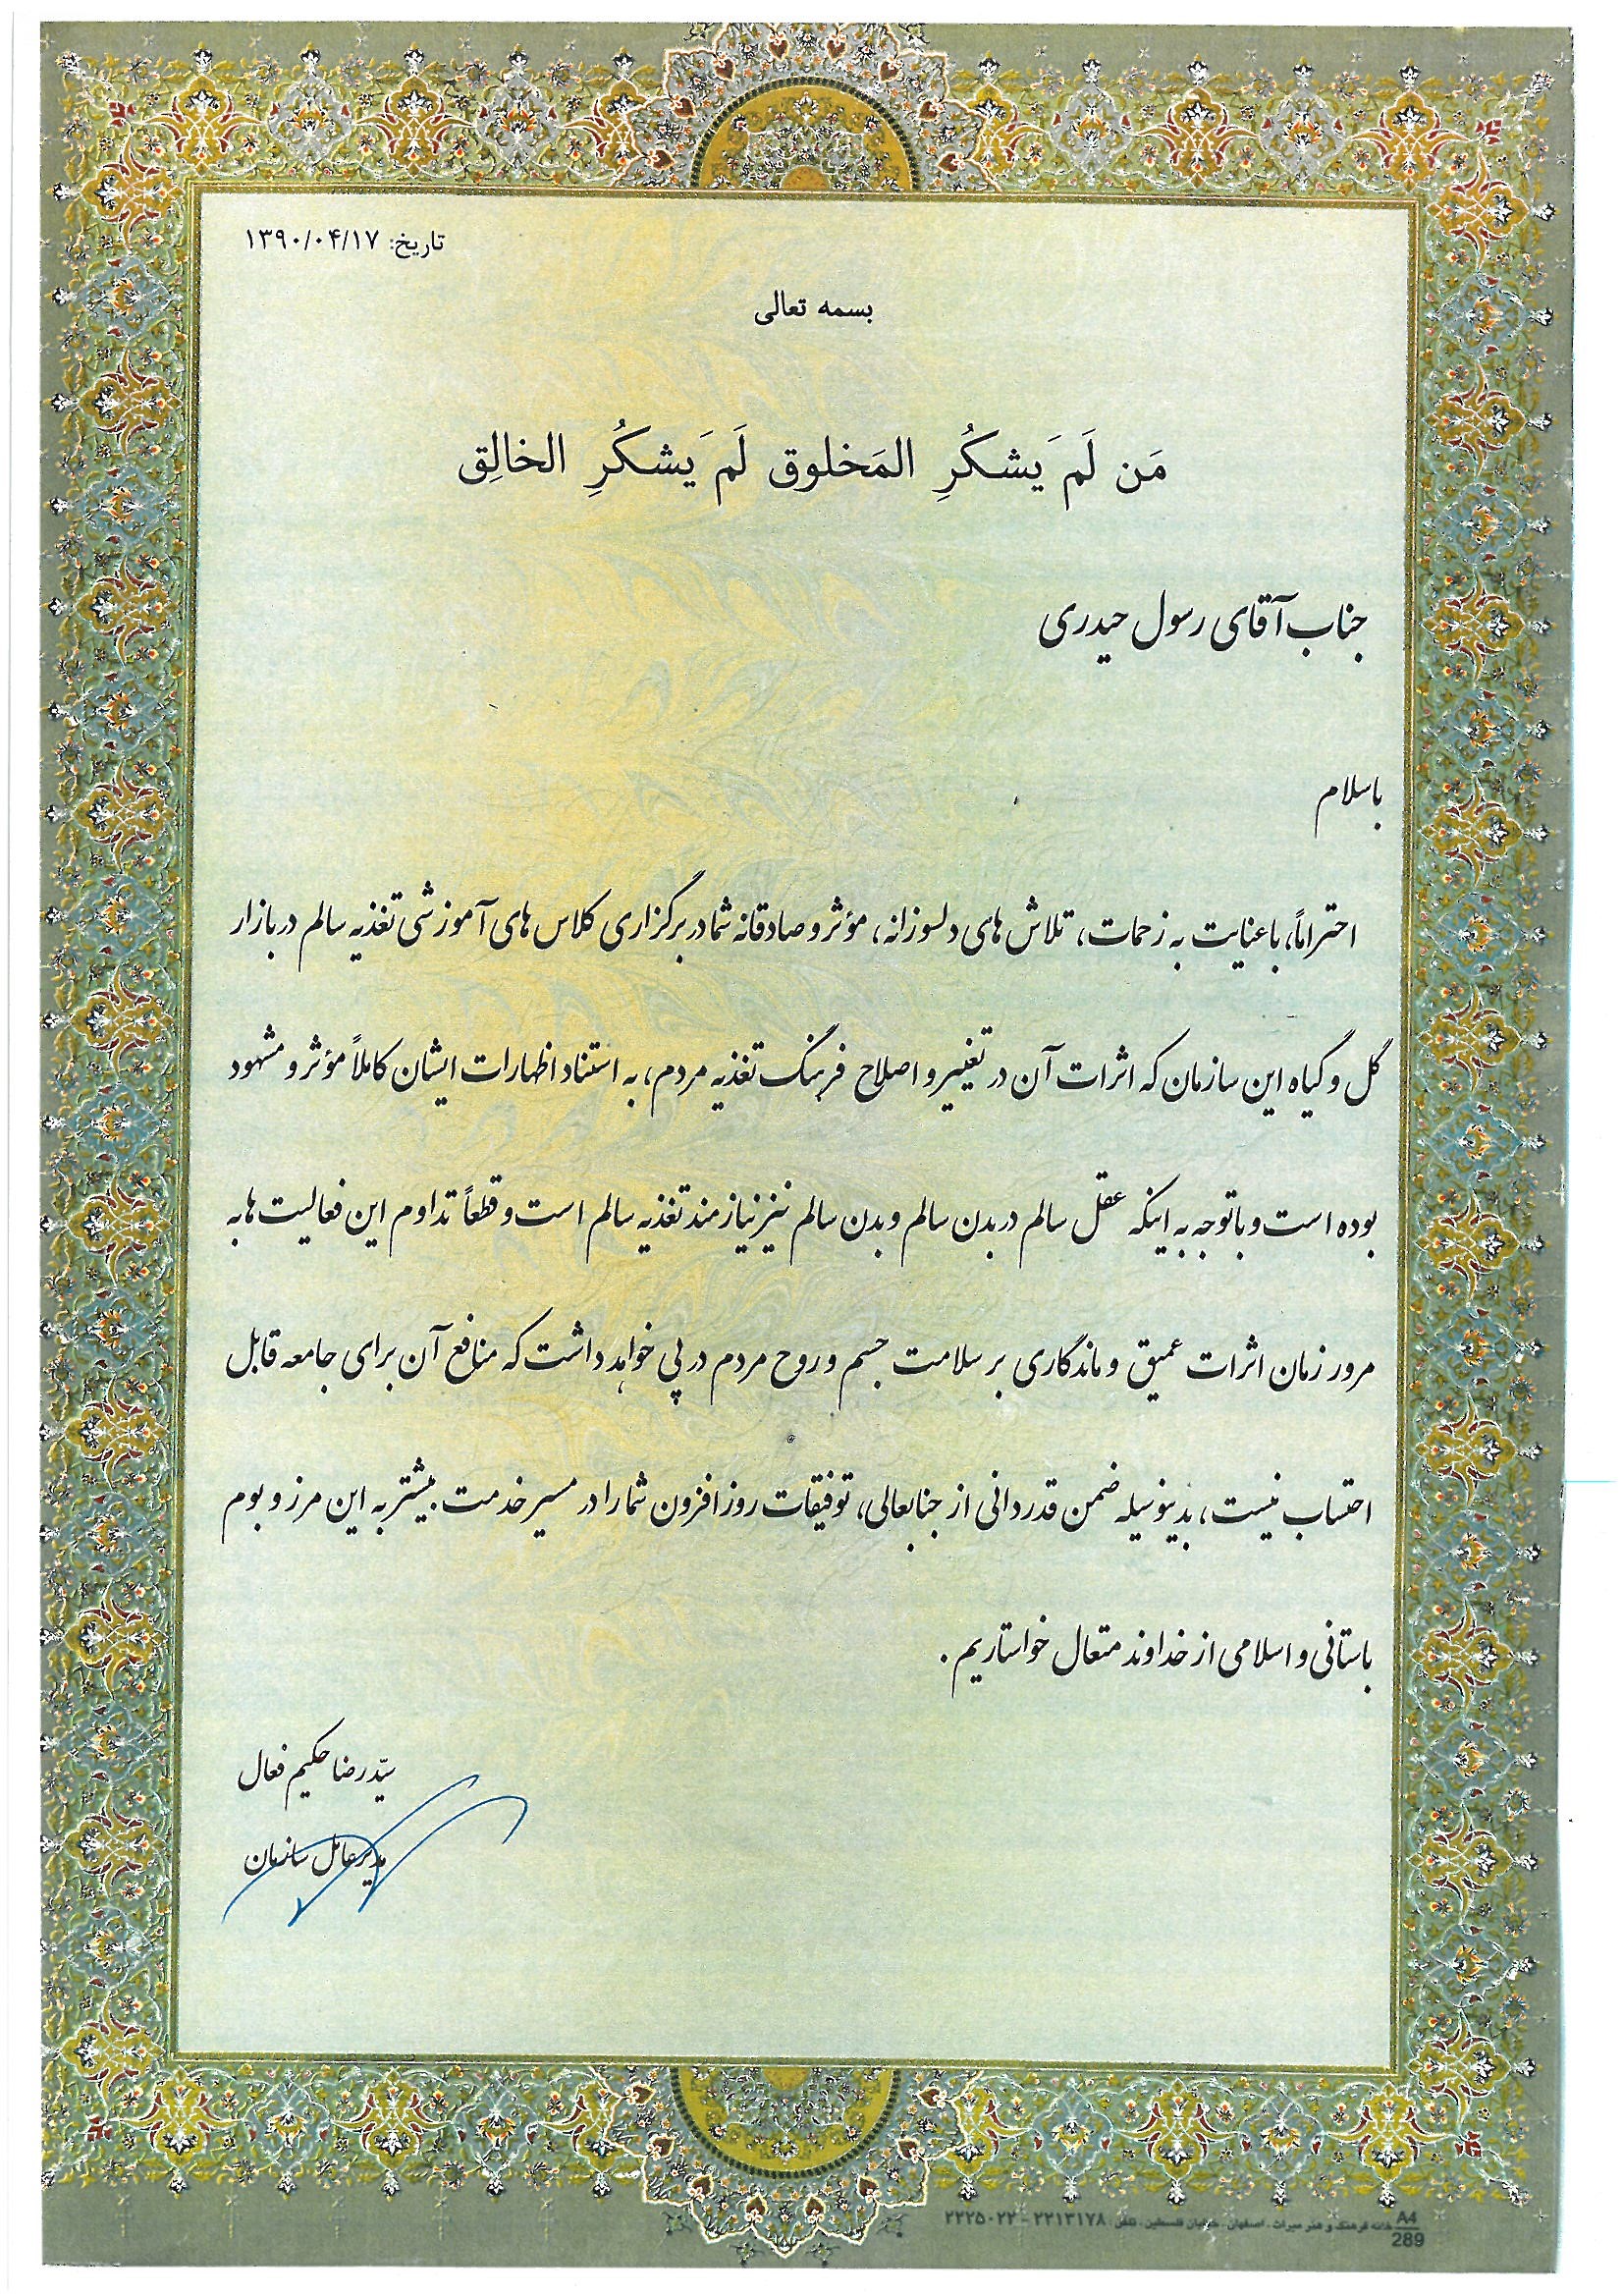 تاریخ: ۱۳۹۰/۰۴/۱۷
بسمه تعالی
مَن لَم یَشکُرِ المَخلوق لَم یَشکُرِ الخالِق
جناب آقای رسول حیدری
با سلام
احتراماً، با عنایت به زحمات، تلاش های دلسوزانه، مؤثر و صادقانه شما در برگزاری کلاس های آموزشی تغذیه سالم در بازار
گل و گیاه این سازمان که اثرات آن در تغییر و اصلاح فرهنگ تغذیه مردم، به استناد اظهارات ایشان کاملاً مؤثر و مشهود
بوده است و با توجه به اینکه عقل سالم در بدن سالم و بدن سالم نیز نیازمند تغذیه سالم است و قطعاً تداوم این فعالیت ها به
مرور زمان اثرات عمیق و ماندگاری بر سلامت جسم و روح مردم در پی خواهد داشت که منافع آن برای جامعه قابل
احتساب نیست، بدینوسیله ضمن قدردانی از جنابعالی، توفیقات روز افزون شما را در مسیر خدمت بیشتر به این مرز و بوم
باستانی و اسلامی از خداوند متعال خواستاریم.
سیّد رضا حکیم فعال
مدیر عامل سازمان
خانه فرهنگ و هنر میراث . اصفهان . خیابان فلسطین . تلفن: ۲۲۱۳۱۷۸ - ۲۲۲۵۰۲۲
A4
289